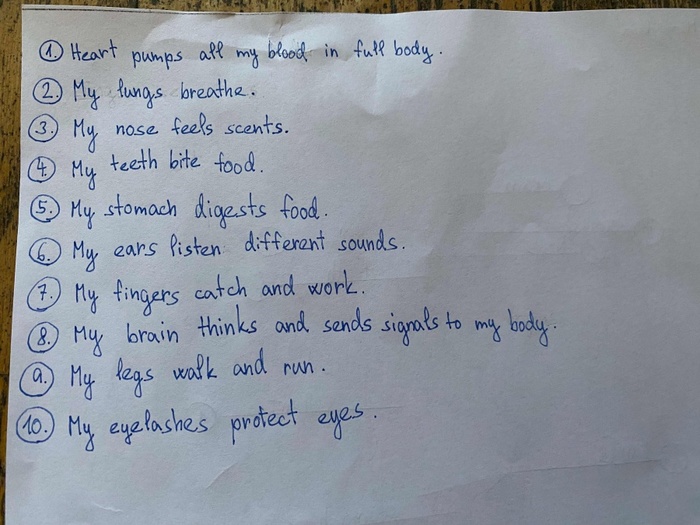 1. Heart pumps all my blood in full body.
2. My lungs breathe.
3. My nose feels scents.
4. My teeth bite food.
5. My stomach digests food.
6. My ears listen different sounds.
7. My fingers catch and work.
8. My brain thinks and sends signals to my body.
9. My legs walk and run.
10. My eyelashes protect eyes.